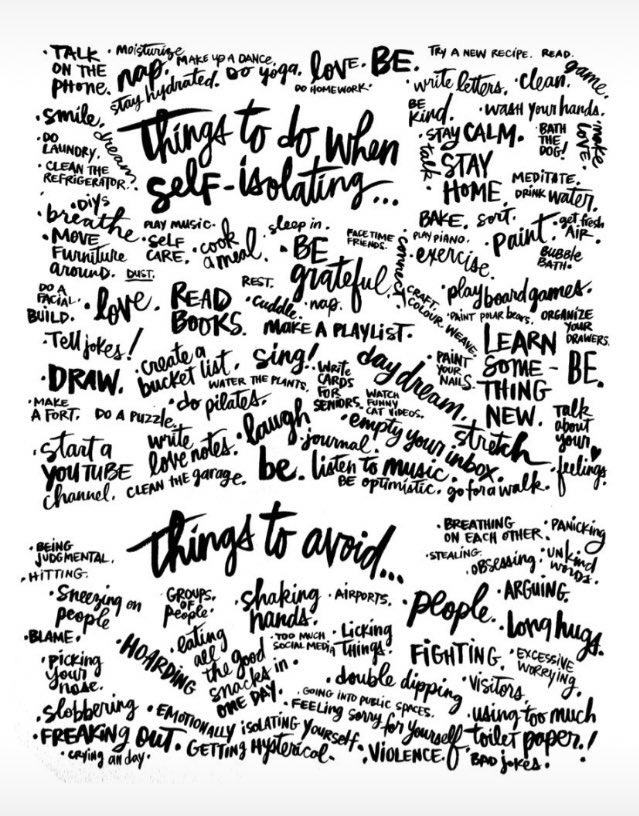 · TALK
ON THE
PHONE.
· moisturize
nap.
stay hydrated.
MAKE UP A DANCE.
DO yoga.
love.
DO HOMEWORK.
BE.
TRY A NEW RECIPE. READ.
game.
write letters. · clean.
BE
kind.
· WASH your HANDS.
· STAY CALM.
BATH
THE
DOG!
make
LOVE.
talk.
STAY
HOME.
MEDITATE.
DRINK water.
· smile.
dream.
· DO
LAUNDRY.
· CLEAN THE
REFRIGERATOR.
things to do when
self-isolating...
· DIYS
· breathe.
· MOVE
FURNITURE
around.
DUST.
PLAY MUSIC.
· SELF
CARE.
· cook
a meal.
sleep in.
FACE TIME
FRIENDS.
· BE
grateful.
connect.
BAKE. sort.
PLAY PIANO.
exercise.
· paint.
get fresh
AIR.
BUBBLE
BATH.
DO A
FACIAL.
BUILD.
· love.
READ
BOOKS.
REST.
· cuddle.
· nap.
MAKE A PLAYLIST.
CRAFT.
COLOUR. WEAVE.
· play board games.
· PAINT POLAR BEARS.
ORGANIZE
YOUR
DRAWERS.
· Tell jokes!
· create a
bucket list.
sing!
daydream.
· PAINT
YOUR
NAILS.
LEARN
SOME-
THING
NEW.
BE.
· DRAW.
WATER THE PLANTS.
· do pilates.
WRITE
CARDS
FOR
SENIORS.
WATCH
FUNNY
CAT VIDEOS.
· MAKE
A FORT.
DO A PUZZLE.
· laugh
stretch
Talk
about
your
feelings.
· start a
YOUTUBE
channel.
write
love notes.
CLEAN THE GARAGE.
· journal.
· empty your inbox.
be.
listen to music.
BE OPTIMISTIC.
go for a walk.
things to avoid...
· BEING
JUDGMENTAL.
· HITTING.
· BREATHING
ON EACH OTHER.
· PANICKING
· STEALING.
· OBSESSING
· UNKIND
WORDS.
· Sneezing on
people
GROUPS.
OF
People.
· shaking
hands.
· AIRPORTS.
· people.
· ARGUING.
· Long hugs.
· BLAME.
· HOARDING
· eating
all
the good
snacks in
ONE DAY.
· TOO MUCH
SOCIAL MEDIA
· Licking
THINGS.
FIGHTING.
· EXCESSIVE
WORRYING.
· picking
your
nose.
· double dipping
· VISITORS.
· GOING INTO PUBLIC SPACES.
· Slobbering
· EMOTIONALLY ISOLATING YOURSELF.
· FEELING SORRY for yourself
· using too much
toilet paper.!
· FREAKING OUT.
· GETTING Hysterical.
· VIOLENCE.
· BAD jokes!
· crying all day.